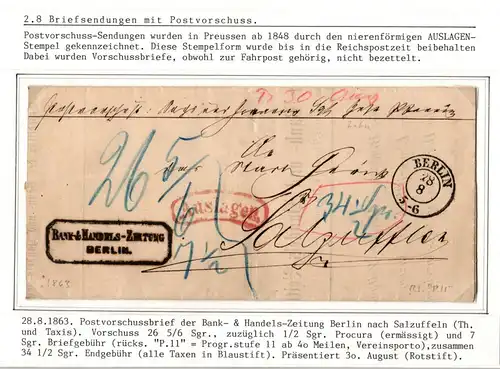 2.8 Briefsendungen mit Postvorschuss.
Postvorschuss-Sendungen wurden in Preussen ab 1848 durch den nierenförmigen AUSLAGEN-
Stempel gekennzeichnet. Diese Stempelform wurde bis in die Reichspostzeit beibehalten
Dabei wurden Vorschussbriefe, obwohl zur Fahrpost gehörig, nicht bezettelt.
26 5/6
BERLIN
28
8
5-6
Auslagen.
34 1/2
BANK-& HANDELS-ZEITUNG
BERLIN.
7 1/2
Salzufflen
1863
RS. "P.11"
28.8.1863. Postvorschussbrief der Bank- & Handels-Zeitung Berlin nach Salzuffeln (Th.
und Taxis). Vorschuss 26 5/6 Sgr., zuzüglich 1/2 Sgr. Procura (ermässigt) und 7
Sgr. Briefgebühr (rücks. "P.11" = Progr.stufe 11 ab 4o Meilen, Vereinsporto),zusammen
34 1/2 Sgr. Endgebühr (alle Taxen in Blaustift). Präsentiert 3o. August (Rotstift).